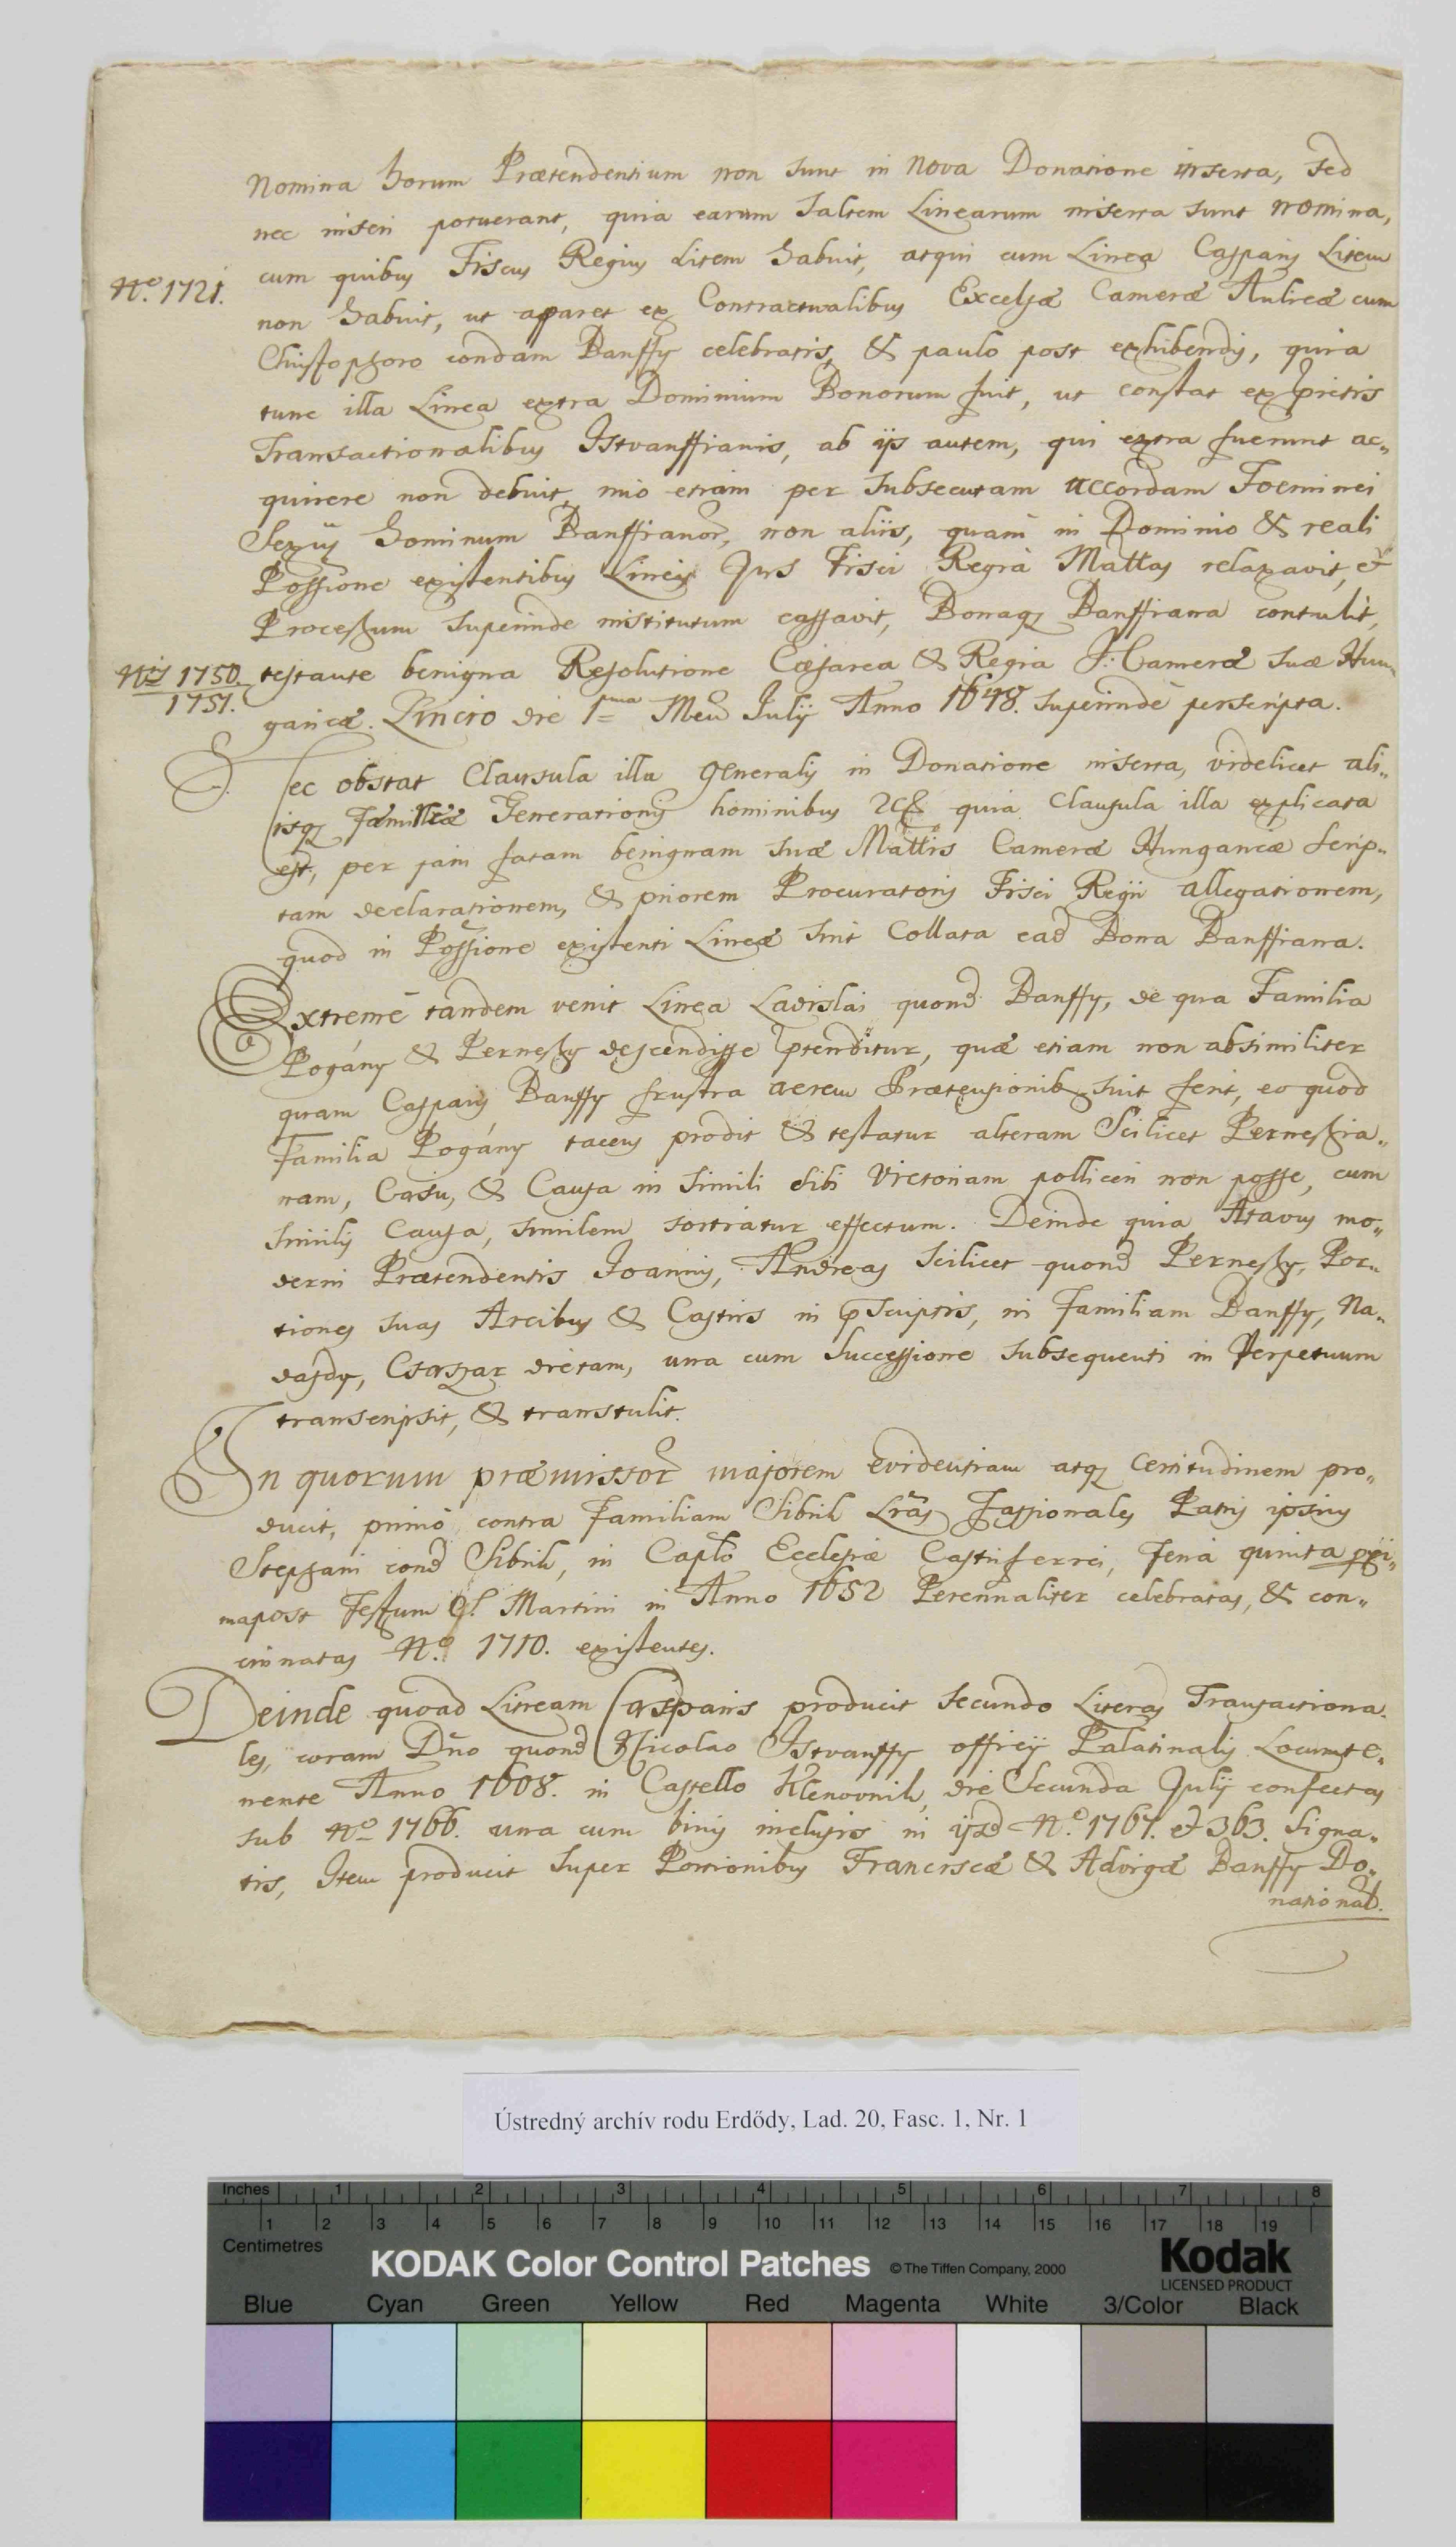 Nomina horum Prætendentium non sunt in Nova Donatione inserta, sed
nec inseri potuerant, quia earum saltem Linearum inserta sunt nomina,
cum quibus Fiscus Regius Litem habuit, atqui cum Linea Casparis Litem
No. 1721.
non habuit, ut apparet ex Contractualibus Excelsæ Cameræ Aulicæ cum
Christophoro condam Banffy celebratis, & paulo post exhibendis, quia
tunc illa Linea extra Dominium Bonorum fuit, ut constat ex
Transactionalibus Istvanffianis, ab ijs autem, qui extra fuerunt ac„
quirere non debuit, imo etiam per subsecutam accordam Foeminei
Sexus hominum Banffianor, non aliis, quam in Dominio & reali
Possione existentibus Lineis Jus Fisci Regia Mattas relaxavit, et
Processum superinde institutum cassavit, Bonaq Banffiana contulit,
Nis 1750.
1751.
testante benigna Resolutione Cæsarea & Regia I: Cameræ suæ Hun„
garicæ. Lincio die 1ma Mens July Anno 1648. superinde perscripta.
Nec obstat Clausula illa generalis in Donatione inserta, videlicet ali„
isq Familiæ Generationis hominibus &c quia Clausula illa explicata
est, per jam fatam benignam suæ Mattis Cameræ Hungaricæ scrip„
tam declarationem, & priorem Procuratoris Fisci Regii allegationem,
quod in Possione existenti Lineæ sint Collata ead Bona Banffiana.
Extremè tandem venit Linea Ladislai quond Banffy, de qua Familia
Pogány & Perneszy descendisse ptenditur, quæ etiam non absimiliter
quam Casparis Banffy frustra aerem Prætensionib suis ferit, eo quod
Familia Pogány tacens prodit & testatur alteram Scilicet Perneszia„
nam, Casu, & Causa in simili sibi Victoriam polliceri non posse, cum
similis Causa, similem sortiatur effectum. Deinde quia Atavus mo„
derni Prætendentis Joannis, Andreas Scilicet quond Perneszy, Por„
tiones suas Arcibus & Castris in pscriptis, in Familiam Banffy, Na„
dasdy, Csaszar dictam, una cum Successione subsequenti in Perpetuum
transcripsit, & transtulit.
In quorum præmissor majorem evidentiam atq certitudinem pro„
ducit, primò contra Familiam Sibrik Lras Fassionales Patris ipsius
Stephani cond Sibrik, in Caplo Ecclesiæ Castriferrei, Feria quinta pxi„
mapost Festum S. Martini in Anno 1652 Perennaliter celebratas, & con„
cinnatas No. 1710. existentes.
Deinde quoad Lineam Casparis producit secundo Literas Transactiona„
les, coram Dno quond Nicolao Istvanffy officij Palatinalis Locumte„
nente Anno 1608. in Castello Klenovnik, die Secunda July confectas
sub No 1766. una cum binis inclusis in ijsd No. 1767. et 363. signa„
tis, Item producit super Portionibus Franciscæ & Advigæ Banffy Do„
nationał.
Ústredný archív rodu Erdődy, Lad. 20, Fasc. 1, Nr. 1
Inches 1 2 3 4 5 6 7 8
1 2 3 4 5 6 7 8 9 10 11 12 13 14 15 16 17 18 19
Centimetres
KODAK Color Control Patches © The Tiffen Company, 2000 Kodak
LICENSED PRODUCT
Blue Cyan Green Yellow Red Magenta White 3/Color Black